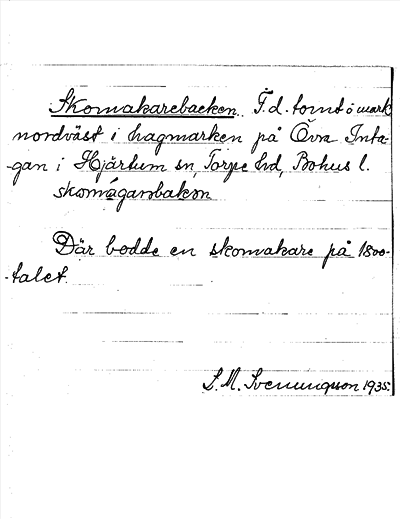 Skomakarebacken. F.d. tomt o mark
nordväst i hagmarken på Övra Inta-
-gan i Hjärtum sn, Torpe hd, Bohus l.
skomágarsbakən
Där bodde en skomakare på 1800-
-talet.
S.M. Svenungsson 1935.